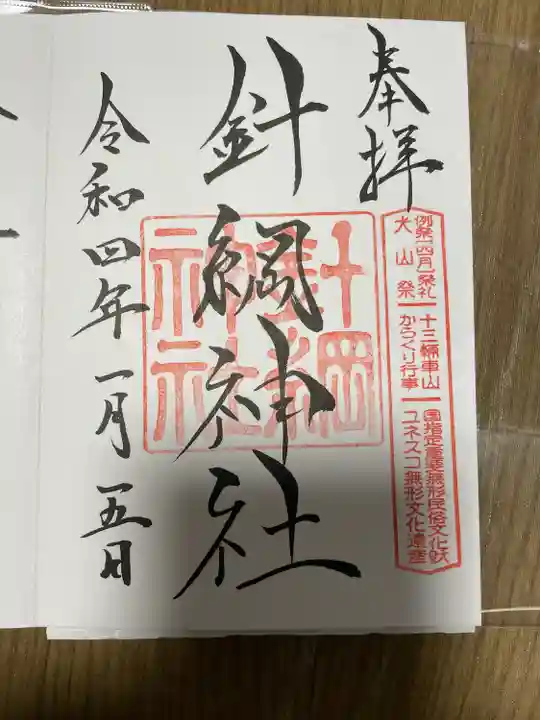 奉拝
例祭(四月)祭礼
犬山祭
十三輛車山
からくり行事
国指定重要無形民俗文化財
ユネスコ無形文化遺産
針綱神社
針綱
神社
令和四年一月五日